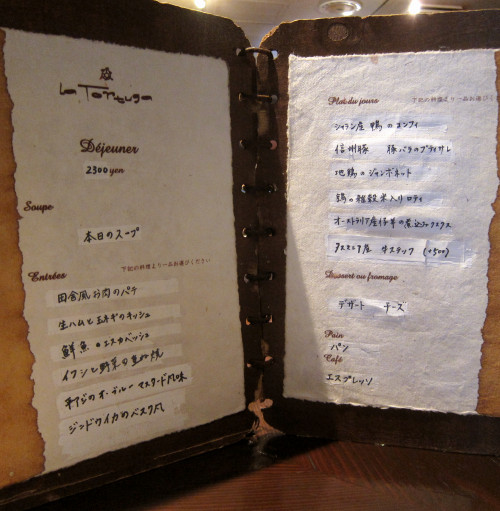 La Tortuga
Déjeuner
2300 yen
Soupe
本日のスープ
Entrées 下記の料理より一品お選びください
田舎風お肉のパテ
生ハムと玉ネギのキッシュ
鮮魚のエスカベッシュ
イワシと野菜の重ね焼
平アジのオーブルー マスタード風味
ジンドウイカのバスク風
Plat du jours 下記の料理より一品お選びください
シャラン産 鴨のコンフィ
信州豚 豚バラのブラッサレ
地鶏のジャンボネット
鶉の雑穀米入りロティ
オーストラリア産仔羊の煮込みクスクス
タスマニア産 牛ステック (+500)
Dessert ou fromage
デザート チーズ
Pain
パン
Café
エスプレッソ